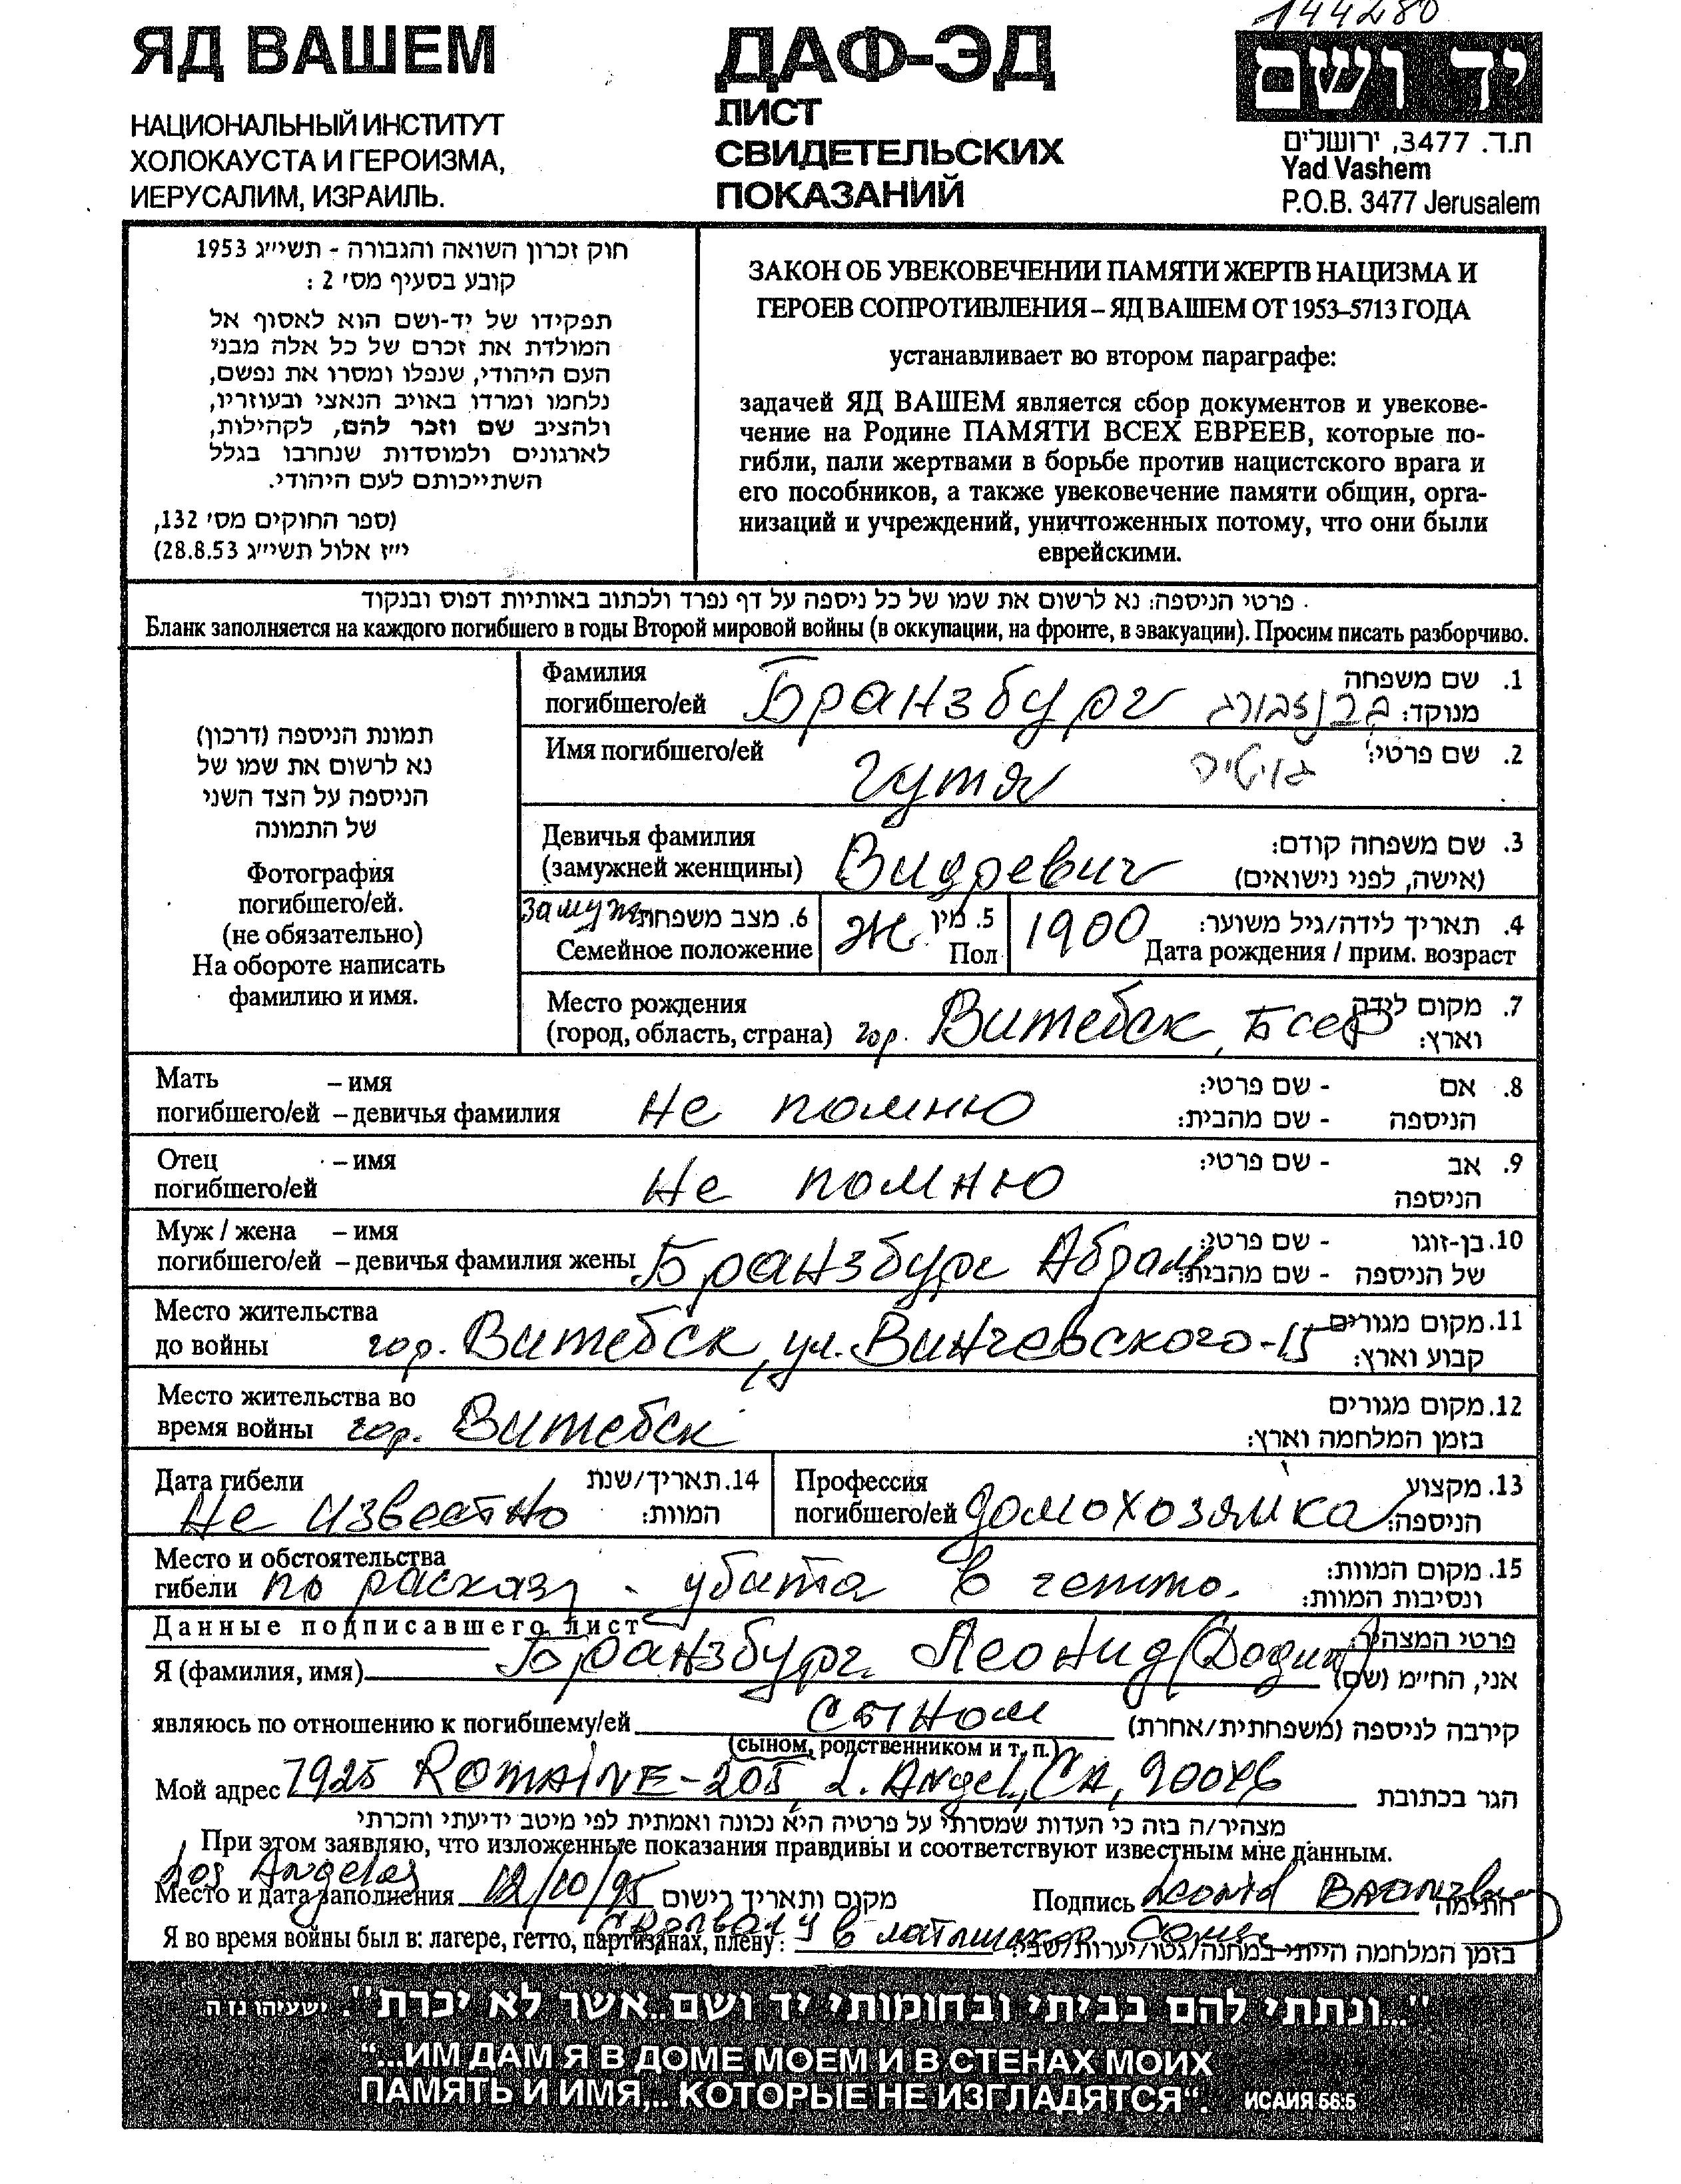 144280
ЯД ВАШЕМ
НАЦИОНАЛЬНЫЙ ИНСТИТУТ
ХОЛОКАУСТА И ГЕРОИЗМА,
ИЕРУСАЛИМ, ИЗРАИЛЬ.
ДАФ-ЭД
ЛИСТ
СВИДЕТЕЛЬСКИХ
ПОКАЗАНИЙ
יד ושם
ת.ד. 3477, ירושלים
Yad Vashem
P.O.B. 3477 Jerusalem
חוק זכרון השואה והגבורה - תשי״ג 1953
קובע בסעיף מס׳ 2 :
תפקידו של יד-ושם הוא לאסוף אל
המולדת את זכרם של כל אלה מבני
העם היהודי, שנפלו ומסרו את נפשם,
נלחמו ומרדו באויב הנאצי ובעוזריו,
ולהציב שם וזכר להם, לקהילות,
לארגונים ולמוסדות שנחרבו בגלל
השתייכותם לעם היהודי.
(ספר החוקים מס׳ 132,
י״ז אלול תשי״ג 28.8.53)
ЗАКОН ОБ УВЕКОВЕЧЕНИИ ПАМЯТИ ЖЕРТВ НАЦИЗМА И
ГЕРОЕВ СОПРОТИВЛЕНИЯ – ЯД ВАШЕМ ОТ 1953–5713 ГОДА
устанавливает во втором параграфе:
задачей ЯД ВАШЕМ является сбор документов и увекове-
чение на Родине ПАМЯТИ ВСЕХ ЕВРЕЕВ, которые по-
гибли, пали жертвами в борьбе против нацистского врага и
его пособников, а также увековечение памяти общин, орга-
низаций и учреждений, уничтоженных потому, что они были
еврейскими.
פרטי הניספה: נא לרשום את שמו של כל ניספה על דף נפרד ולכתוב באותיות דפוס ובנקוד
Бланк заполняется на каждого погибшего в годы Второй мировой войны (в оккупации, на фронте, в эвакуации). Просим писать разборчиво.
תמונת הניספה (דרכון)
נא לרשום את שמו של
הניספה על הצד השני
של התמונה
Фотография
погибшего/ей.
(не обязательно)
На обороте написать
фамилию и имя.
Фамилия 1. שם משפחה
погибшего/ей Бранзбург ברנזבורג מנוקד:
Имя погибшего/ей 2. שם פרטי:
Гутя גוטיה
Девичья фамилия 3. שם משפחה קודם:
(замужней женщины) Видревич (אישה, לפני נישואים)
замуж 6. מצב משפחתי 5. מין 4. תאריך לידה/גיל משוער:
Семейное положение Ж Пол 1900 Дата рождения / прим. возраст
Место рождения 7. מקום לידה
(город, область, страна) гор. Витебск, Бсср וארץ:
Мать – имя 8. אם - שם פרטי:
погибшего/ей – девичья фамилия Не помню הניספה - שם מהבית:
Отец – имя 9. אב - שם פרטי:
погибшего/ей Не помню הניספה
Муж / жена – имя 10. בן-זוגו - שם פרטי:
погибшего/ей – девичья фамилия жены Бранзбург Абрам של הניספה - שם מהבית:
Место жительства 11. מקום מגורים
до войны гор. Витебск, ул. Винчевского-15 קבוע וארץ:
Место жительства во 12. מקום מגורים
время войны гор. Витебск בזמן המלחמה וארץ:
Дата гибели 14. תאריך/שנת Профессия 13. מקצוע
Не известно המוות: погибшего/ей домохозяйка הניספה:
Место и обстоятельства 15. מקום המוות:
гибели по расказу - убита в гетто. ונסיבות המוות:
Данные подписавшего лист פרטי המצהיר:
Я (фамилия, имя) Бранзбург Леонид אני, החי״מ (שם)
являюсь по отношению к погибшему/ей сыном קירבה לניספה (משפחתית/אחרת)
(сыном, родственником и т. п.)
Мой адрес 7925 ROMAINE-205, L. Angel, CA, 90046 הגר בכתובת
מצהיר/ה בזה כי העדות שמסרתי על פרטיה היא נכונה ואמתית לפי מיטב ידיעתי והכרתי
При этом заявляю, что изложенные показания правдивы и соответствуют известным мне данным.
Los Angeles
Место и дата заполнения 12/10/95 מקום ותאריך רישום Подпись Leonid חתימה
Я во время войны был в: лагере, гетто, партизанах, плену: בזמן המלחמה הייתי במחנה/גטו/יערות/שבי:
"...ונתתי להם בביתי ובחומותי יד ושם...אשר לא יכרת". ישעיהו נו ה
“...ИМ ДАМ Я В ДОМЕ МОЕМ И В СТЕНАХ МОИХ
ПАМЯТЬ И ИМЯ,.. КОТОРЫЕ НЕ ИЗГЛАДЯТСЯ“. ИСАИЯ 56:5